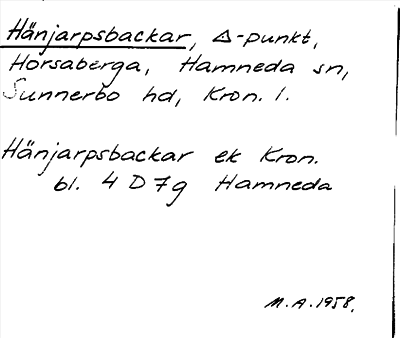 Hänjarpsbackar, Δ-punkt,
Horsaberga, Hamneda sn,
Sunnerbo hd, Kron. l.
Hänjarpsbackar ek Kron.
bl. 4 D 7g Hamneda
M.A. 1958.